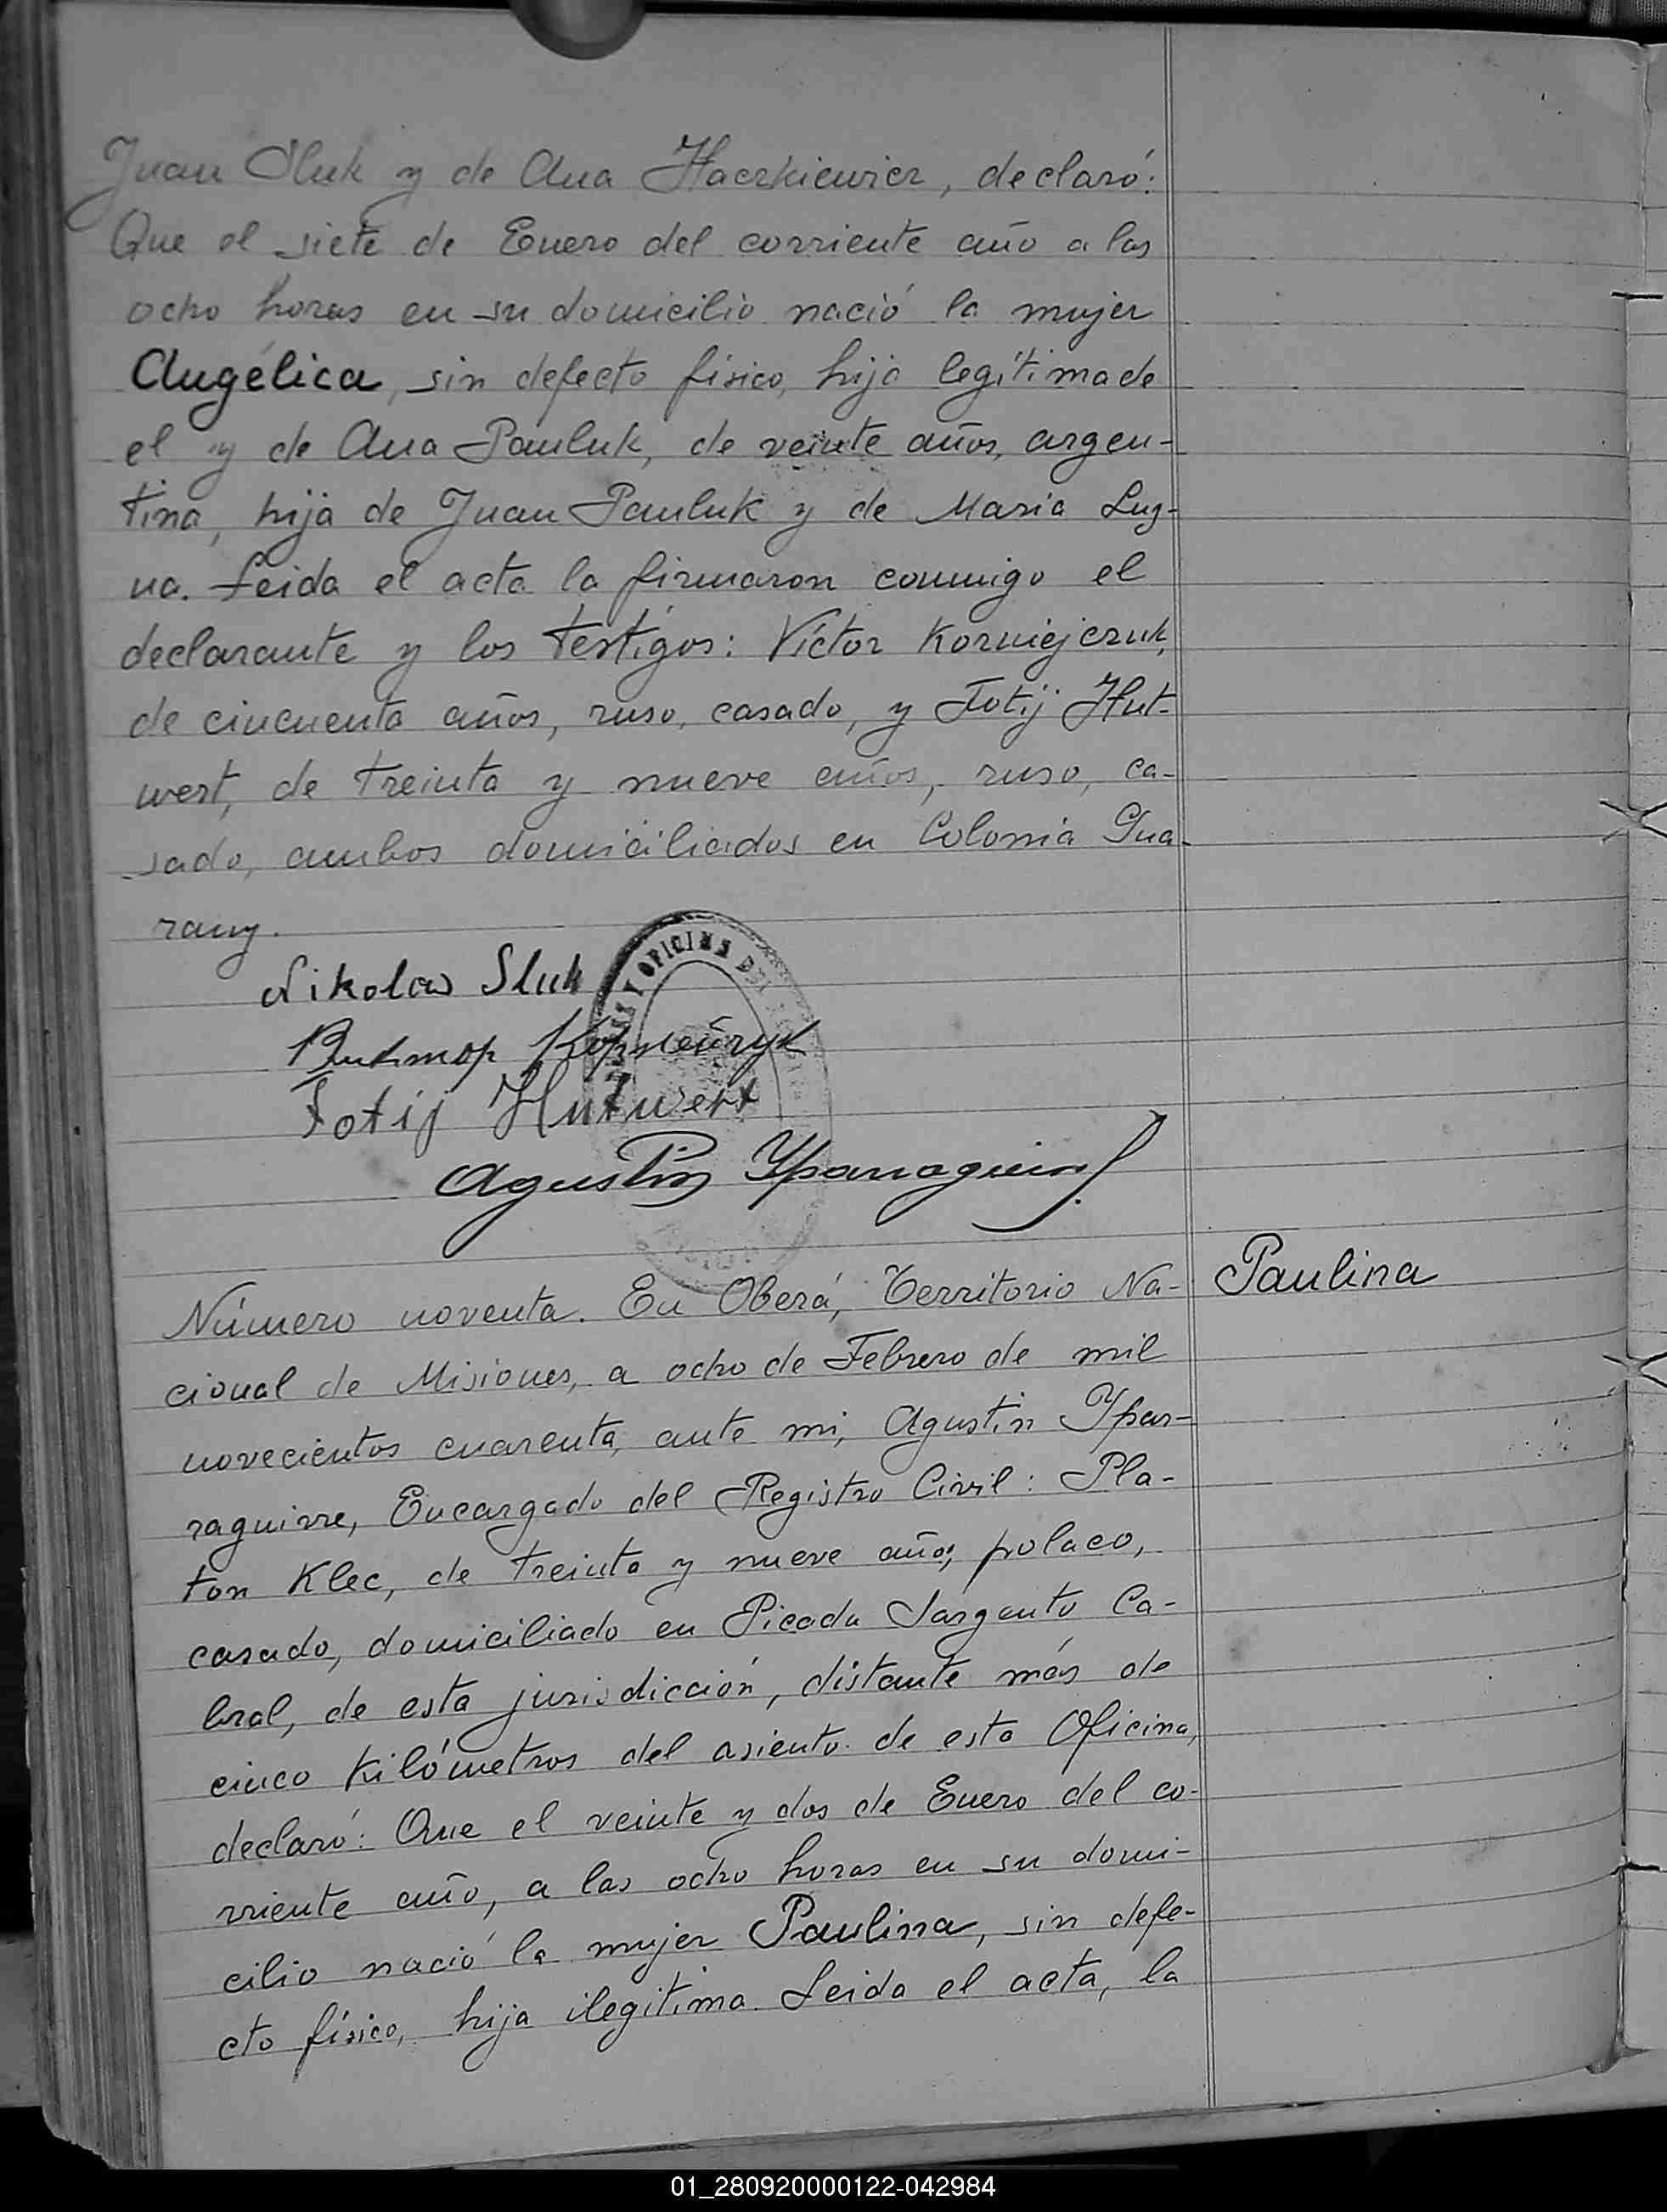 Juan Sluk y de Ana Haczkiewicz, declaró:
Que el siete de Enero del corriente año a las
ocho horas en su domicilio nació la mujer
Angélica, sin defecto físico, hija legítima de
el y de Ana Pauluk, de veinte años, argen-
tina, hija de Juan Pauluk y de Maria Lug-
na. Leida el acta la firmaron conmigo el
declarante y los testigos: Víctor Korniejczuk,
de cincuenta años, ruso, casado, y Fotij Hut-
wert, de treinta y nueve años, ruso, ca-
sado, ambos domiciliados en Colonia Gua-
rany.
Nikolaw Sluk
OFICINA DEL
Виктор Корнейчук
Fotij Hutwert
Agustin Yparraguirre
Número noventa. En Oberá, Territorio Na-
Paulina
cional de Misiones, a ocho de Febrero de mil
novecientos cuarenta, ante mi, Agustin Ypar-
raguirre, Encargado del Registro Civil: Pla-
ton Klec, de treinta y nueve años, polaco,
casado, domiciliado en Picada Sargento Ca-
bral, de esta jurisdicción, distante más de
cinco kilómetros del asiento de esta Oficina,
declaró: Que el veinte y dos de Enero del co-
rriente año, a las ocho horas en su domi-
cilio nació la mujer Paulina, sin defe-
cto físico, hija ilegitima. Leida el acta, la
01_280920000122-042984